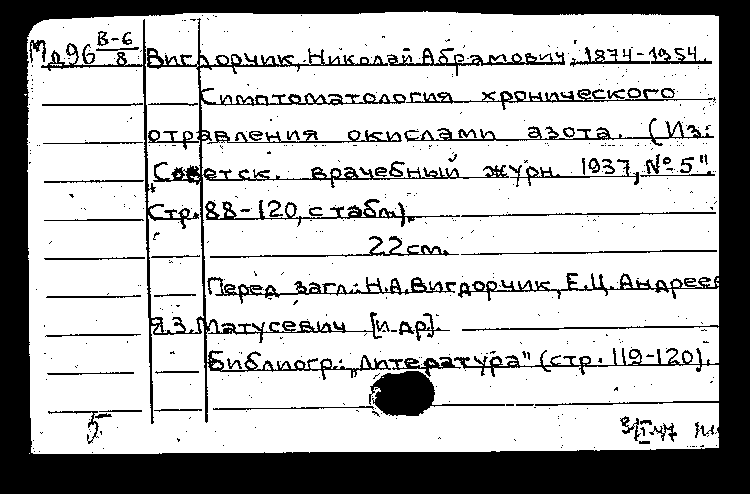 Мд96 В-6/8
Вигдорчик, Николай Абрамович, 1874-1954.
Симптоматология хронического
отравления окислами азота. (Из:
"Советск. врачебный журн. 1937, №5".
Стр. 88-120, с табл).
22 см.
Перед загл.: Н.А.Вигдорчик, Е.Ц.Андреев
Я.З.Матусевич [и др].
Библиогр.: "Литература" (стр. 119-120).
5